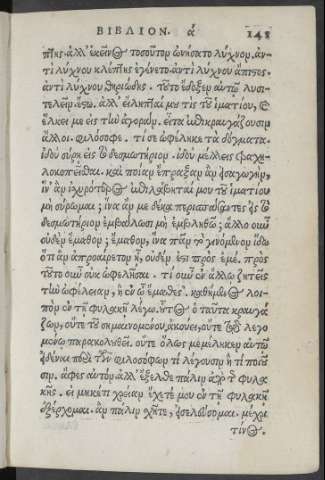 ΒΙΒΛΙΟΝ. ά 148
πτης. ἀλλ' ἐκεῖνος τοσοῦτου ὠνήσατο λύχνον, ἀν-
τὶ λύχνου κλέπτης ἐγένετο. ἀντὶ λύχνου ἄπιστος.
ἀντὶ λύχνου θηριώδης. τοῦτο ἔδοξεν αὐτῷ λυσι-
τελεῖν. ἔστω. ἀλλ' εἴληπταί μου τις τοῦ ἱματίου, καὶ
ἕλκει με εἰς τὴν ἀγοράν. εἶτα ἐπικραυγάζουσιν
ἄλλοι. φιλόσοφε. τί σε ὠφέληκε τὰ δόγματα.
ἰδοὺ σύρῃ εἰς τὸ δεσμωτήριον. ἰδοὺ μέλλεις τραχη-
λοκοπεῖσθαι. καὶ ποίαν ἔπραξα ἂν εἰσαγωγὴν,
ἵν' ἂν ἰσχυρότερος ἐπιλάβηταί μου τοῦ ἱματίου
μὴ σύρωμαι; ἵνα ἄν με δέκα περισπάσαντες εἰς τὸ
δεσμωτήριον ἐμβάλωσι μὴ ἐμβληθῶ; ἄλλο οὖν
οὐδὲν ἔμαθον; ἔμαθον, ἵνα πᾶν τὸ γινόμενον ἴδω
ὅτι ἂν ἀπροαίρετον ᾖ, οὐδέν ἐστι πρὸς ἐμέ. πρὸς
τοῦτο οὖν οὐκ ὠφέλησαι. τί οὖν ἐν ἄλλῳ ζητεῖς
τὴν ὠφέλειαν, ἢ ἐν ᾧ ἔμαθες. καθήμενος λοι-
πὸν ἐν τῇ φυλακῇ λέγω. οὗτος ὁ ταῦτα κραυγά-
ζων, οὔτε τοῦ σημαινομένου ἀκούει, οὔτε τῷ λεγο
μένῳ παρακολουθεῖ. οὔτε ὅλως μεμέληκεν αὐτῷ
εἰδέναι περὶ τῶν φιλοσόφων τί λέγουσιν ἢ τί ποιοῦ
σιν. ἄφες αὐτὸν. ἀλλ' ἔξελθε πάλιν ἀπὸ τῆς φυλα
κῆς. εἰ μηκέτι χρείαν ἔχετέ μου ἐν τῇ φυλακῇ
ἐξέρχομαι. ἂν πάλιν σχῆτε, εἰσελεύσομαι. μέχρι
τίνος.